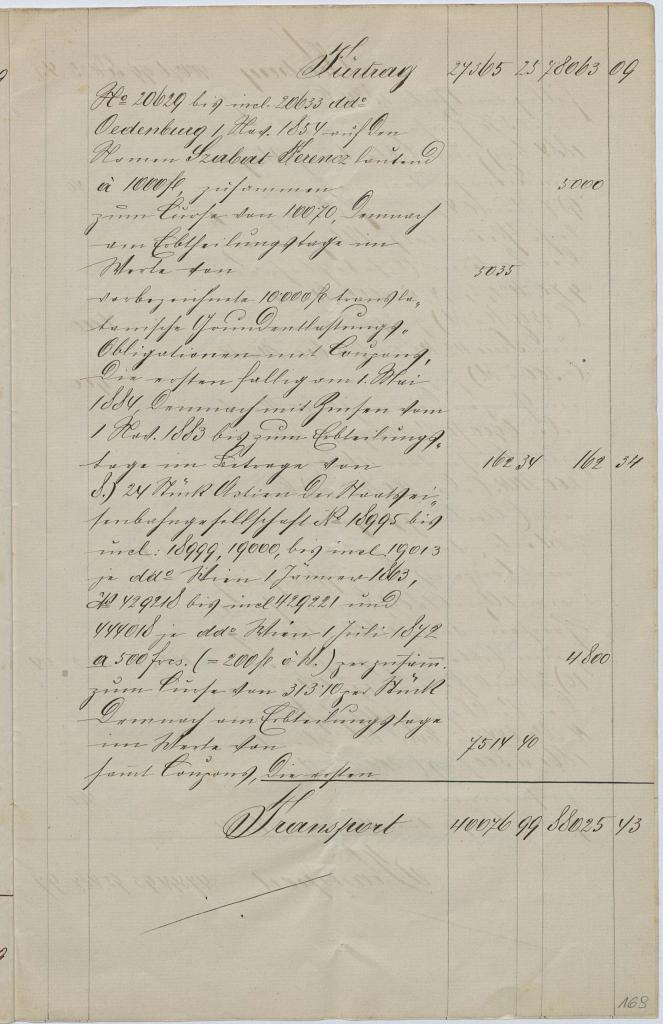 Fürtrag 27365 25 78063 09
No 20629 bis incl. 20633 ddo
Oedenburg 1. Nov. 1854 auf den
Namen Szabart Ferencz lautend
à 1000 fl, zusammen 5000
zum Curse von 100·70, demnach
am Erbtheilungstage im
Werte von 5035
vorbezeichnete 10000 fl transla-
tanische Grundentlastungs-
Obligationen mit Coupons,
die ersten fällig am 1. Mai
1884, demnach mit Zinsen vom
1 Nov. 1883 bis zum Erbteilungs-
tage im Betrage von 162 34 162 34
8.) 24 Stück Actien der Staatsei-
senbahngesellschaft No 18995 bis
incl: 18999, 19000, bis incl 19013
je ddo Wien 1 Jänner 1863,
No 429218 bis incl 429221 und
444018 je ddo Wien 1 Juli 1872
a 500 frcs. (= 200 fl ö. W.) per zusamm. 4800
zum Curse von 313·10 per Stück
demnach am Erbteilungstage
im Werte von 7514 40
sammt Coupons, die ersten
Transport 40076 99 88025 43
169